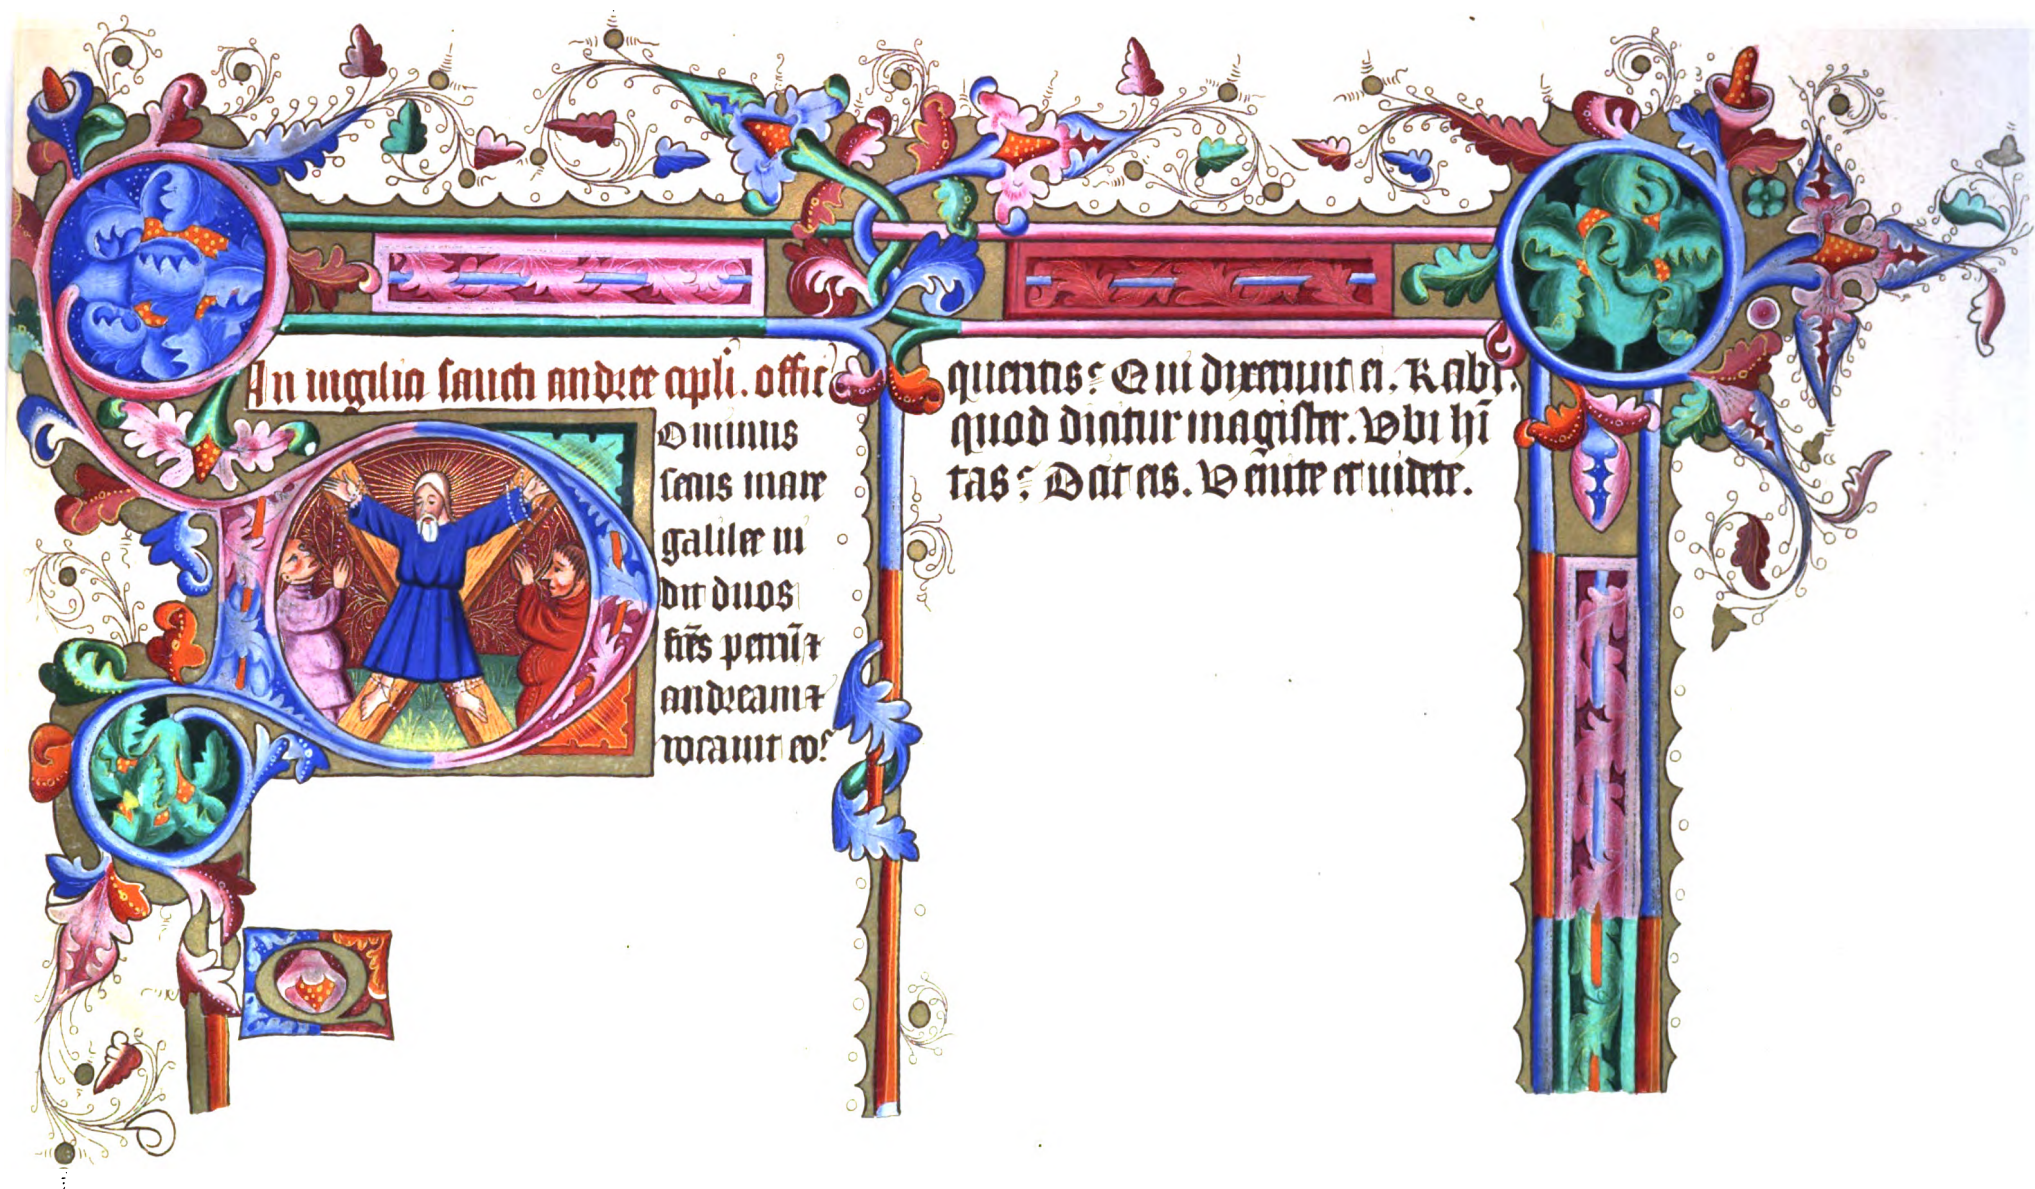 In uigilia sancti andree apl̄i. offic̄
Ominus
secus mare
galilee ui
dit duos
fr̄es petrū ⁊
andream ⁊
uocauit eos
quentis: Qui dixerunt ei. Rabi.
quod dicitur magister. Vbi hī
tas: Dicit eis. Venite et uidete.
Q